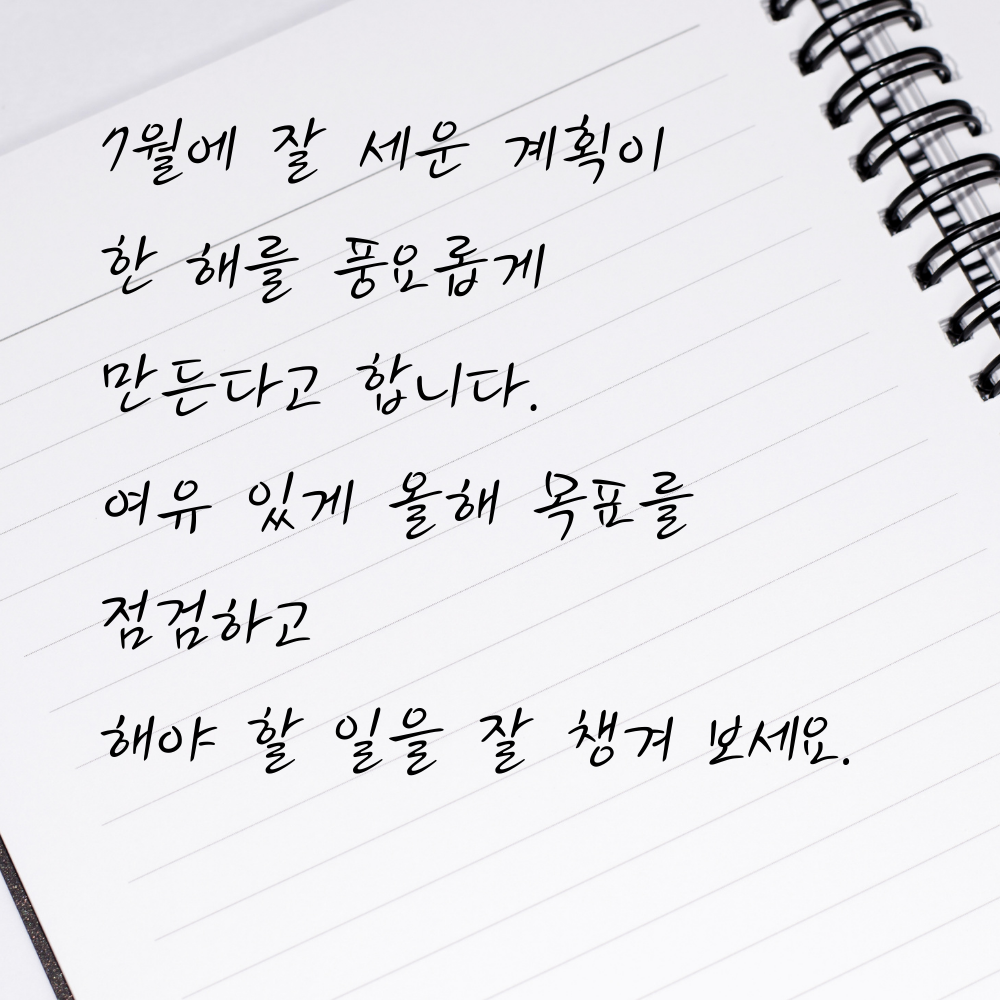 7월에 잘 세운 계획이
한 해를 풍요롭게
만든다고 합니다.
여유 있게 올해 목표를
점검하고
해야 할 일을 잘 챙겨 보세요.